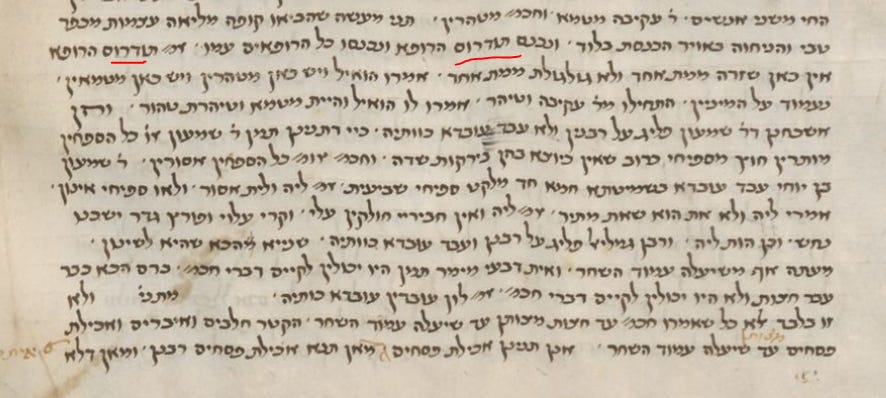 החי משני אנשים. ר' עקיבה מטמא וחכמ' מטהרין. תני מעשה שהביאו קופה מליאה עצמות מכפר
טבי והניחוה באויר הכנסת בלוד. ונכנס תודרוס הרופא ונכנסו כל הרופאים עמו. אמ' תודרוס הרופא
אין כאן שזרה ממת אחד ולא גולגולת ממת אחד. אמרו הואיל ויש כאן מטהרין ויש כאן מטמאין.
נעמוד על המיניין. התחילו מר' עקיבה וטיהר. אמרו לו הואיל והיית מטמא וטיהרת טהור.
אשכחנן דר' שמעון פליג על רבנן ולא עבד עובדא כוותיה. כיי דתנינן תמן ר' שמעון או' כל הספחין
מותרין חוץ מספיחי כרוב שאין כיוצא בהן בירקות שדה. וחכמ' אומ' כל הספחין אסורין. ר' שמעון
בן יוחי עבד עובדא בשמיטתא חמא חד מלקט ספיחי שביעית. אמ' ליה ולית אסור. ולאו ספיחי אינון.
אמרי ליה ולא את הוא שאת מתיר. אמ' ליה ואין חביריי חולקין עלי. וקרי עלוי ופורץ גדר ישכנו
נחש. וכן הות ליה. ורבן גמליאל פליג על רבנן ועבד עובדא כוותיה. שנייא הכא שהיא לשינון.
מעתה אף משיעלה עמוד השחר. ואית דבעי מימר תמן היו יכולין לקיים דברי חכמ'. ברם הכא כבר
עבר חצות ולא היו יכולין לקיים דברי חכמ'. אמ' לון עובדין עובדא כותיה. מתני' ולא
זו בלבד לא כל שאמרו חכמ' עד חצות מצותן עד שיעלה עמוד השחר. הקטר חלבים ואיברים ואכילת
פסחים עד שיעלה עמוד השחר. אנן תנינן אכילת פסחים מאן תנא אכילת פסחים רבנן. ומאן דלא